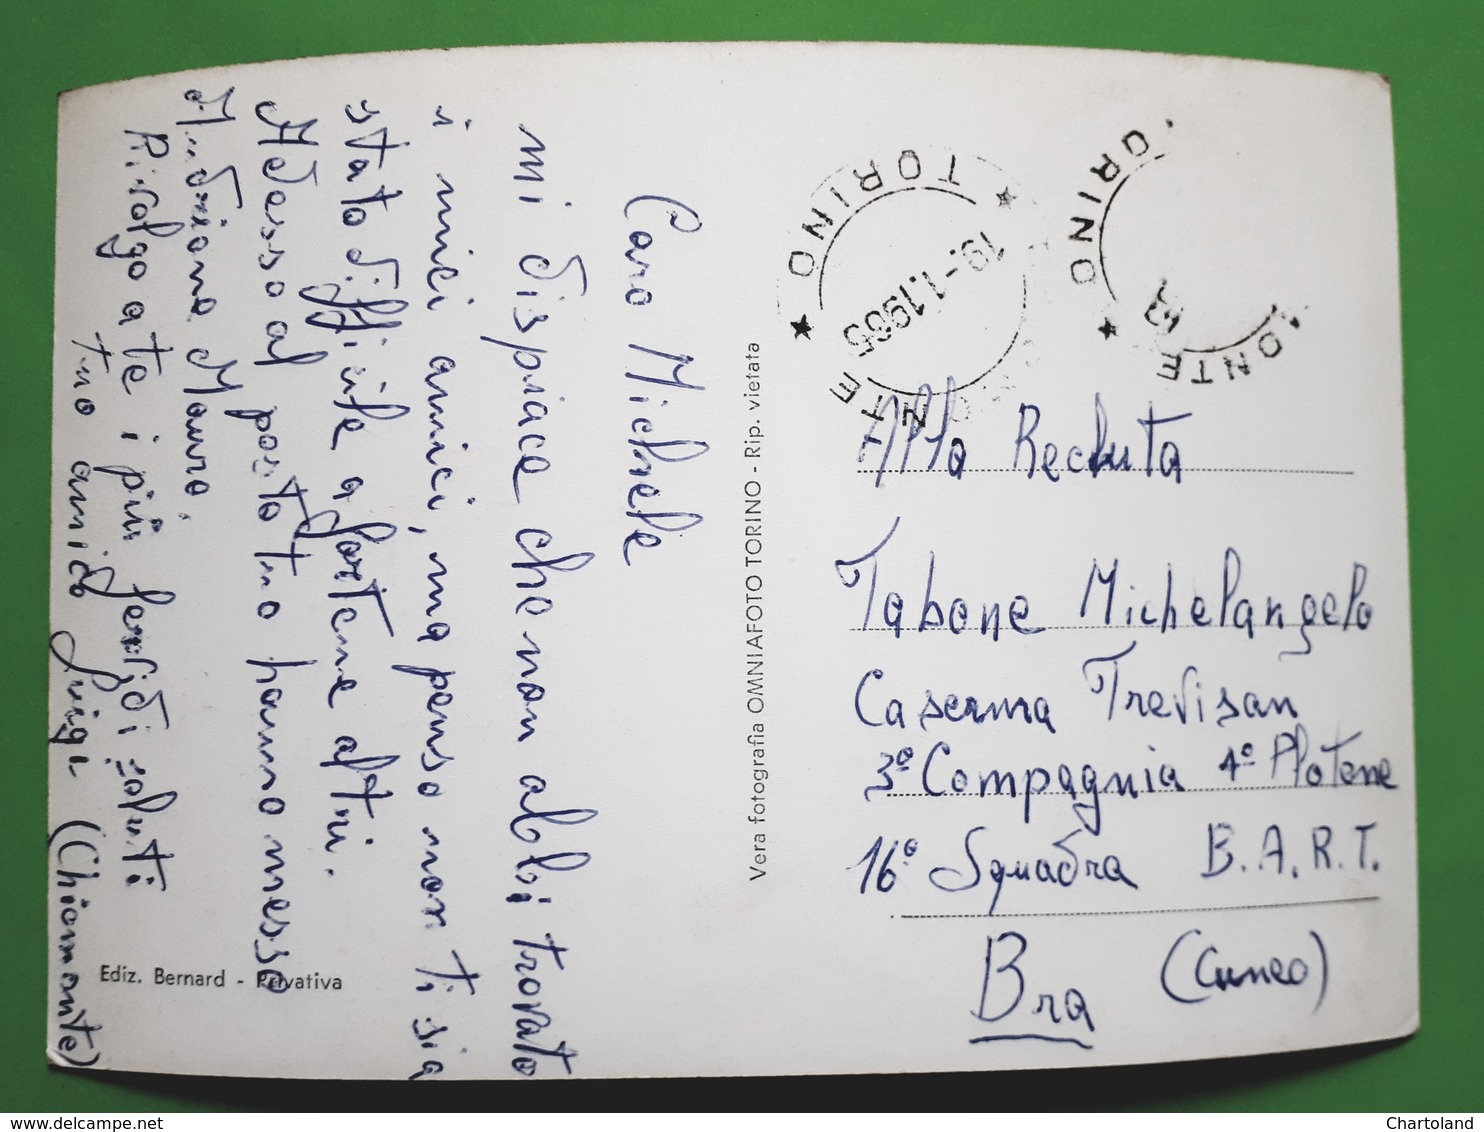 Caro Michele
mi dispiace che non abbi trovato
i miei amici, ma penso non ti sia
stato difficile a fartene altri.
Adesso al posto tuo hanno messo
Andrione Mauro.
Rivolgo a te i più fervidi saluti
tuo amico Luigi (Chiamonte)
Ediz. Bernard - Privativa
Vera fotografia OMNIAFOTO TORINO - Rip. vietata
TORINO
19.-1.1965
TORINO
Alla Recluta
Tabone Michelangelo
Caserma Trevisan
3ª Compagnia 4º Plotone
16ª Squadra B.A.R.T.
Bra (Cuneo)
www.delcampe.net
Chartoland